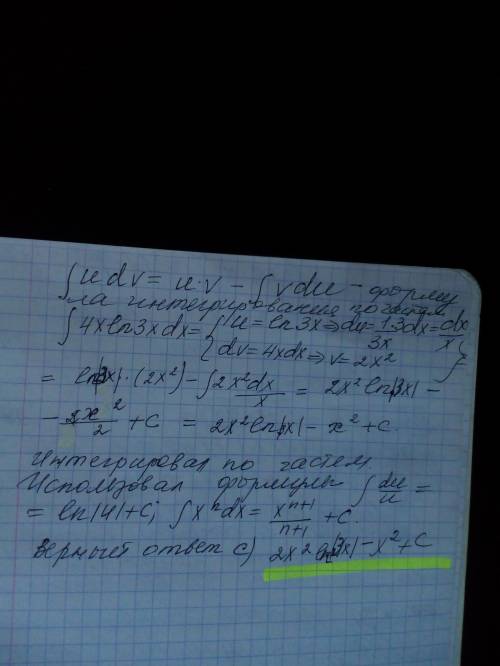 ∫udv = u·v − ∫vdu − форму
ла интегрирования по частям
∫4xln3xdx = {u = ln3x ⇒ du = 1·3dx/3x = dx/x
{dv = 4xdx ⇒ v = 2x² } =
= ln|3x|·(2x²) − ∫2x²dx/x = 2x²ln|3x| −
− 2x²/2 + C = 2x²ln|x| − x² + C.
Интегрировал по частям
Использовал формулы ∫du/u =
= ln|u| + C; ∫xⁿdx = xⁿ⁺¹/n+1 + C.
Верный ответ c) 2x²ln|3x| − x² + C